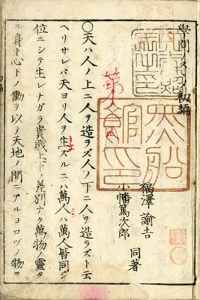 學問ノスヽメ 初編
福澤諭吉
小幡篤次郎
同著
〇天ハ人ノ上ニ人ヲ造ラズ人ノ下ニ人ヲ造ラズト云
ヘリサレバ天ヨリ人ヲ生ズルニハ萬人ハ萬人皆同ジ
位ニシテ生レナガラ貴賤上下ノ差別ナク萬物ノ靈タ
ル身ト心トノ働ヲ以テ天地ノ間ニアルヨロヅノ物ヲ